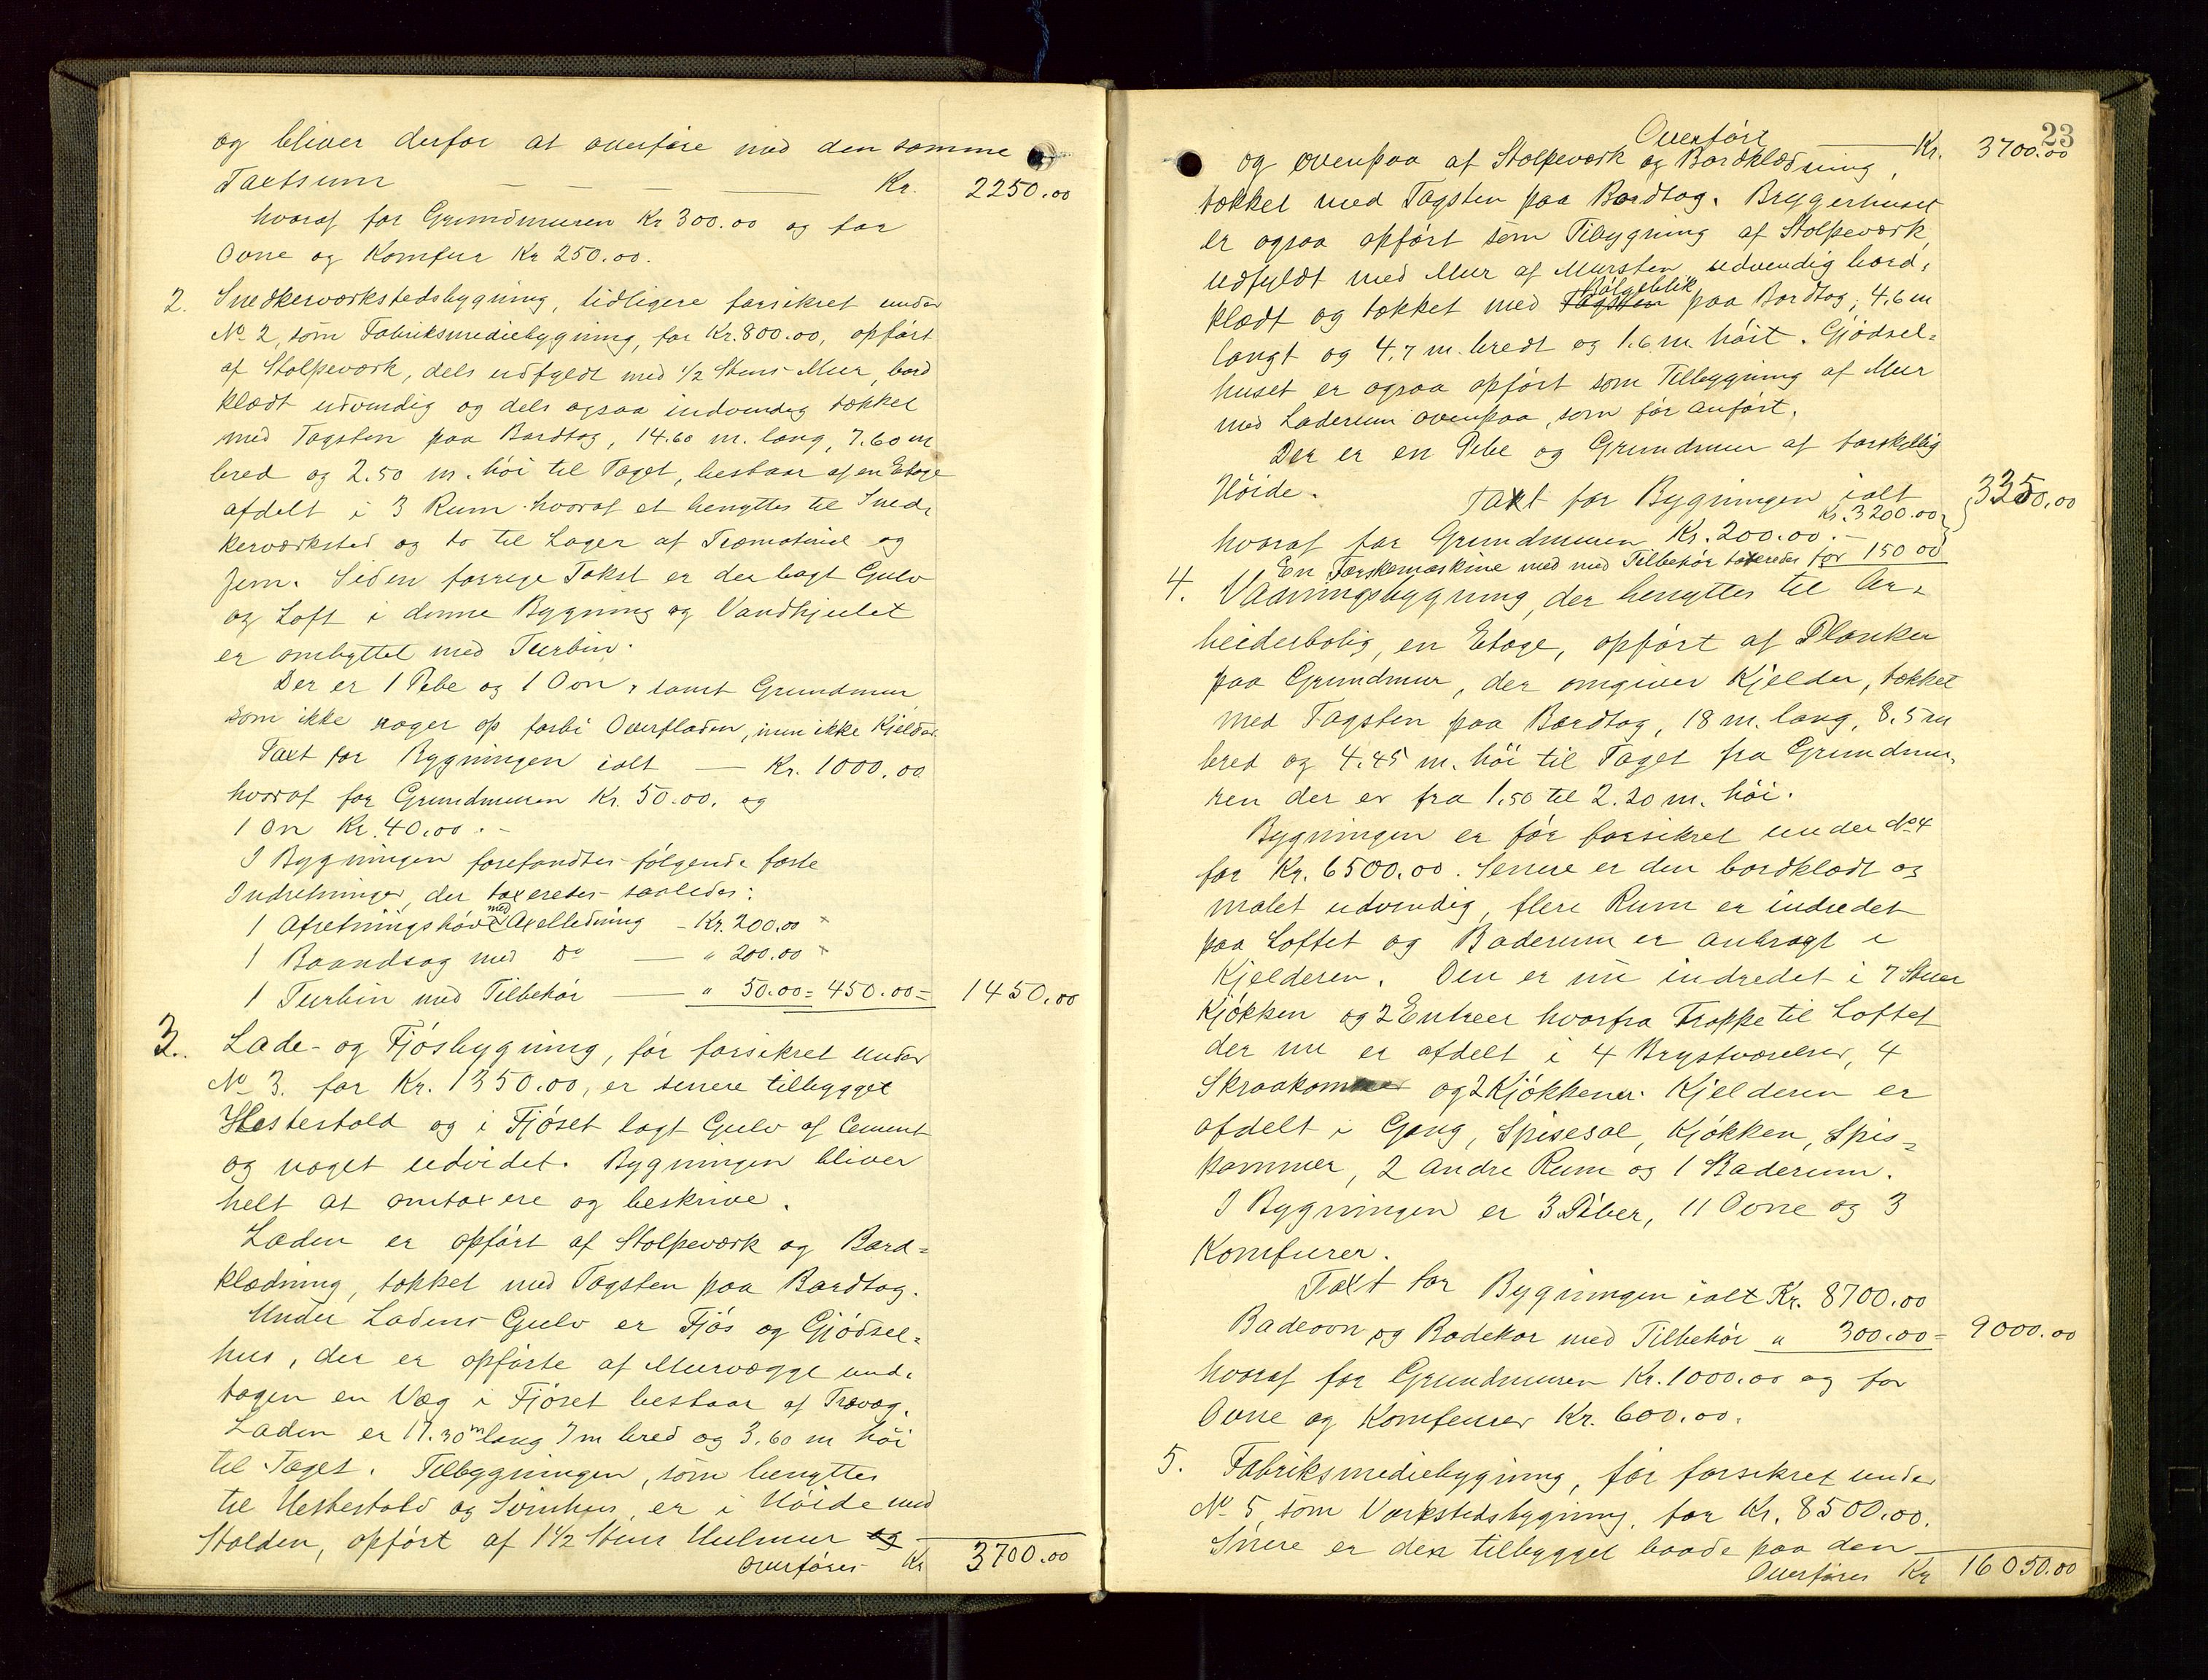 og bliver derfor at overføre med den samme
Taxtsum — — — Kr. 2250.00
hvoraf for Grundmuren Kr 300.00 og for
Ovne og Komfur Kr 250.00.
2. Snedkerværkstedsbygning, tidligere forsikret under
No 2, som Fabriksmediebygning, for Kr. 800.00, opført
af Stolpeværk, dels udfyldt med 1/2 Stens Mur, bord
klædt udvendig og dels ogsaa indvendig tækket
med Tagsten paa Bordtag, 14.60 m. lang, 7.60 m
bred og 2.50 m. høi til Taget, bestaar af en Etage
afdelt i 3 Rum hvoraf et benyttes til Sned-
kerværksted og to til Lager af Træmateriel og
Jern. Siden forrige Takst er der lagt Gulv
og Loft i denne Bygning og Vandhjulet
er ombyttet med Turbin.
Der er 1 Pibe og 1 Ovn, samt Grundmur
som ikke rager op forbi Overfladen, men ikke Kjelder.
Taxt for Bygningen ialt — Kr. 1000.00
hvoraf for Grundmuren Kr. 50.00. og
1 On Kr. 40.00. -
I Bygningen forefandtes følgende faste
Indretninger, der taxeredes saaledes:
1 Afretningshøvl med Axelledning - Kr. 200.00
1 Baandsag med Do — " 200.00
1 Turbin med Tilbehør — " 50.00 = 450.00 = 1450.00
3. Lade- og Fjøsbygning, før forsikret under
No 3. for Kr. 1350.00, er senere tilbygget
Hestestald og i Fjøset lagt Gulv af Cement
og noget udvidet. Bygningen bliver
helt at omtaxere og beskrive.
Laden er opført af Stolpeværk og Bord=
klædning, tækket med Tagsten paa Bordtag.
Under Ladens Gulv er Fjøs og Gjødsel=
hus, der er opførte af Murvægge und-
tagen en Væg i Fjøset bestaar af Trævæg.
Laden er 17.30 m lang 7 m bred og 3.60 m høi
til Taget. Tilbygningen, som benyttes
til Hestestald og Svinhus, er i Høide med
Stalden, opført af 1 1/2 Stens Hulmur og
Overføres Kr 3700.00
23
Overført — Kr. 3700.00
og ovenpaa af Stolpeværk og Bordklædning,
tækket med Tagsten paa Bordtag. Bryggerhuset
er ogsaa opført som Tilbygning af Stolpeværk,
udfyldt med Mur af Mursten udvendig bord-
Bølgeblik
klædt og tækket med Tagsten paa Bordtag, 4.6 m
langt og 4.7 m. bredt og 1.6 m. høit. Gjødsel=
huset er ogsaa opført som Tilbygning af Mur
med Laderum ovenpaa, som før anført.
Der er en Pibe og Grundmur af forskjellig
Høide. Taxt for Bygningen ialt 3350.00
Kr. 3200.00
hvoraf for Grundmuren Kr. 200.00. -
En Tærskemaskine med med Tilbehør taxeredes for 150 00
4. Vaaningsbygning, der benyttes til Ar-
beiderbolig, en Etage, opført af Planker
paa Grundmur, der omgiver Kjelder, tækket
med Tagsten paa Bordtag, 18 m. lang, 8.5 m
bred og 4.45 m. høi til Taget fra Grundmu-
ren der er fra 1.50 til 2.20 m. høi.
Bygningen er før forsikret under No 4
for Kr. 6500.00. Senere er den bordklædt og
malet udvendig, flere Rum er indredet
paa Loftet og Baderum er anbragt i
Kjelderen. Den er nu indredet i 7 Stuer
Kjøkken og 2 Entreer hvorfra Trappe til Loftet
der nu er afdelt i 4 Brystværelser, 4
Skraakommer og 2 Kjøkkener. Kjelderen er
afdelt i Gang, Spisesal, Kjøkken, Spis=
kammer, 2 andre Rum og 1 Baderum.
I Bygningen er 3 Piber, 11 Ovne og 3
Komfurer.
Taxt for Bygningen ialt Kr. 8700.00
Badeovn og Badekar med Tilbehør " 300.00 = 9000.00
hvoraf for Grundmuren Kr. 1000.00 og for
Ovne og Komfurer Kr. 600.00.
5. Fabriksmediebygning, før forsikret under
No 5 som Værkstedsbygning, for Kr. 8500.00.
Snere er den tilbygget baade paa den
Overføres Kr 16050.00